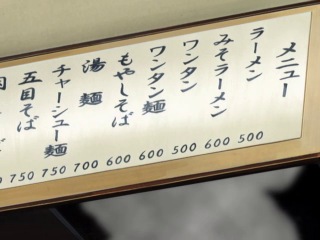 メニュー
ラーメン 500
みそラーメン 600
ワンタン 500
ワンタン麺 600
もやしそば 600
湯麺 700
チャーシュー麺 750
五目そば 750